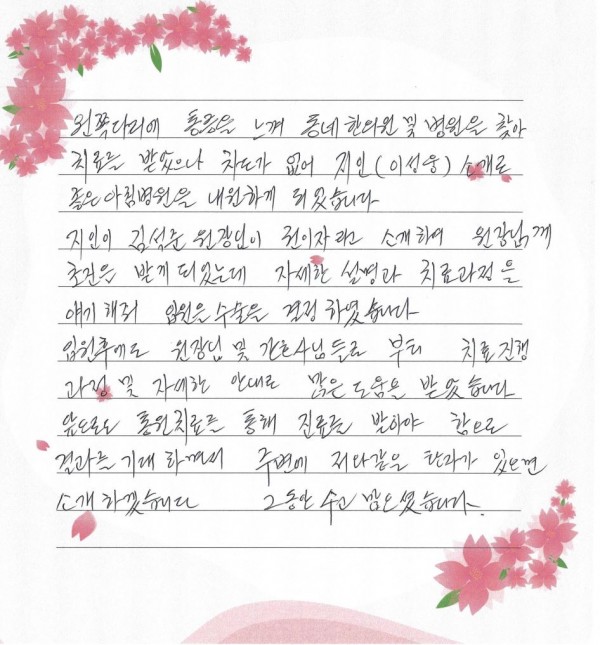 왼쪽다리에 통증을 느껴 동네한의원 및 병원을 찾아
치료를 받았으나 차도가 없어 지인(이성웅) 소개로
좋은아침병원을 내원하게 되었습니다
지인이 김석준 원장님이 권위자라고 소개하여 원장님께
조언은 받게 되었는데 자세한 설명과 치료과정을
얘기해줘 입원은 수술을 결정 하였습니다
입원후에도 원장님 및 간호사님들로 부터 치료진행
과정 및 자세한 안내로 많은 도움을 받았습니다
앞으로도 통원치료를 통해 진료를 받아야 함으로
결과를 기대 하면서 주변에 저와같은 환자가 있으면
소개 하겠습니다 그동안 수고 많으셨습니다.